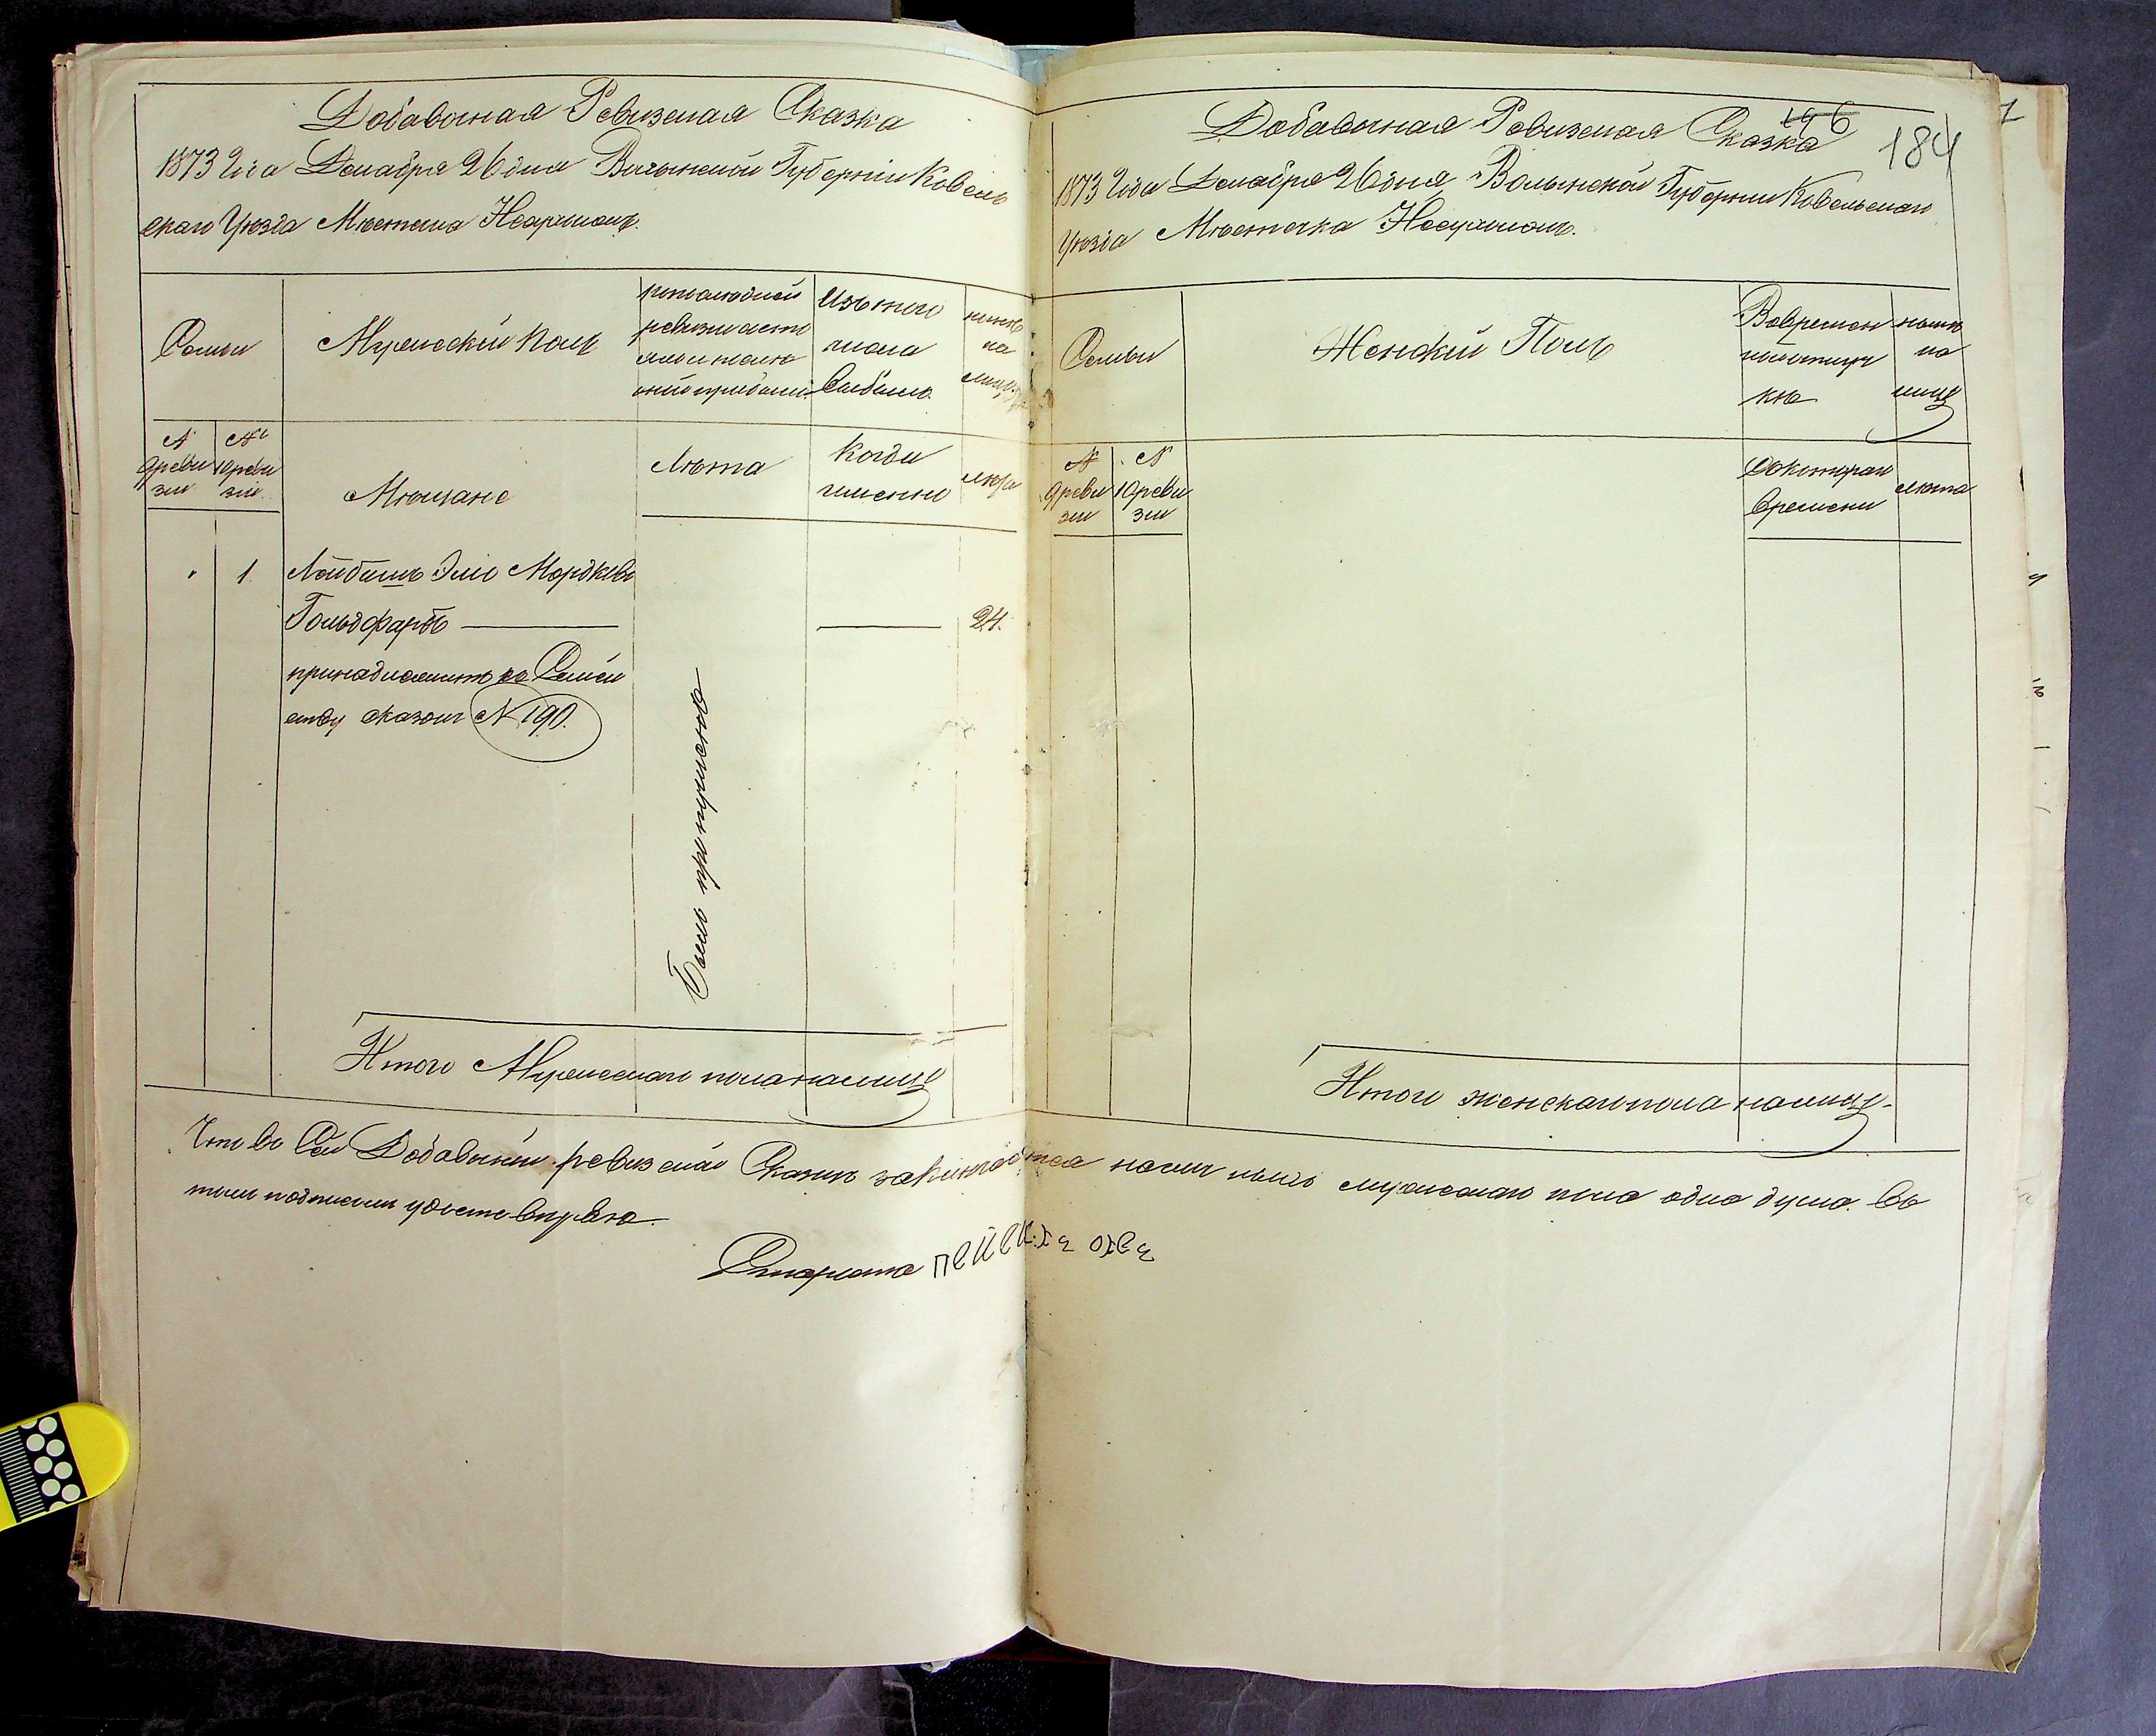 Добавочная Ревизская Сказка
1873 Года Декабря 26 дня Волынской Губерніи Ковель
скаго Уѣзда Мѣстечка Несухоижъ.
Семьи
Мужескій Полъ
ревизіи
Изъ того
числа
выбыло
нынѣ
на
лицо
№
9 реви
зіи
№
10 реви
зіи
Мѣщане
Лѣта
Когда
именно
лѣта
1.
Лейбишъ Эліо Мордковъ
Гольдфарбъ
24.
принадлежитъ къ Семей
ству сказки № 190.
Былъ пропущенъ
Итого Мужескаго пола налицо
Добавочная Ревизская Сказка
196
184
1873 Года Декабря 26 дня Волынской Губерніи Ковельскаго
Уѣзда Мѣстечка Несухоижъ.
Семьи
Женскій Полъ
Во времен
ной отлуч
кѣ
нынѣ
на
лицо
№
9 реви
зіи
№
10 реви
зіи
Съ котораго
времени
лѣта
Итого женскаго пола налицо
Что въ Сей Добавочной ревизской Сказкѣ заключается налицо мужескаго пола одна душа. въ
томъ подписомъ удостовѣряю
Староста